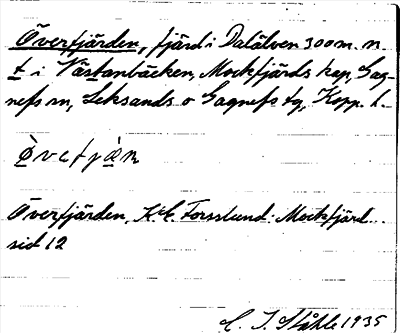 Överfjärden, fjärd i Dalälven 300 m. n
t i Västanbäcken, Mockfjärds kap, Gag-
nefs sn, Leksands o Gagnefs tg, Kopp. l.
Överfjärden, K.E. Forsslund: Mockfjärd
sid 12
C. I. Ståhle 1935